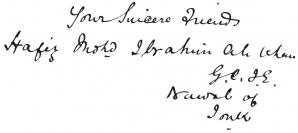 Your Sincere Friends
Hafiz Mohd Ibrahim Ali Khan
G.C.I.E.
Nawab of
Tonk